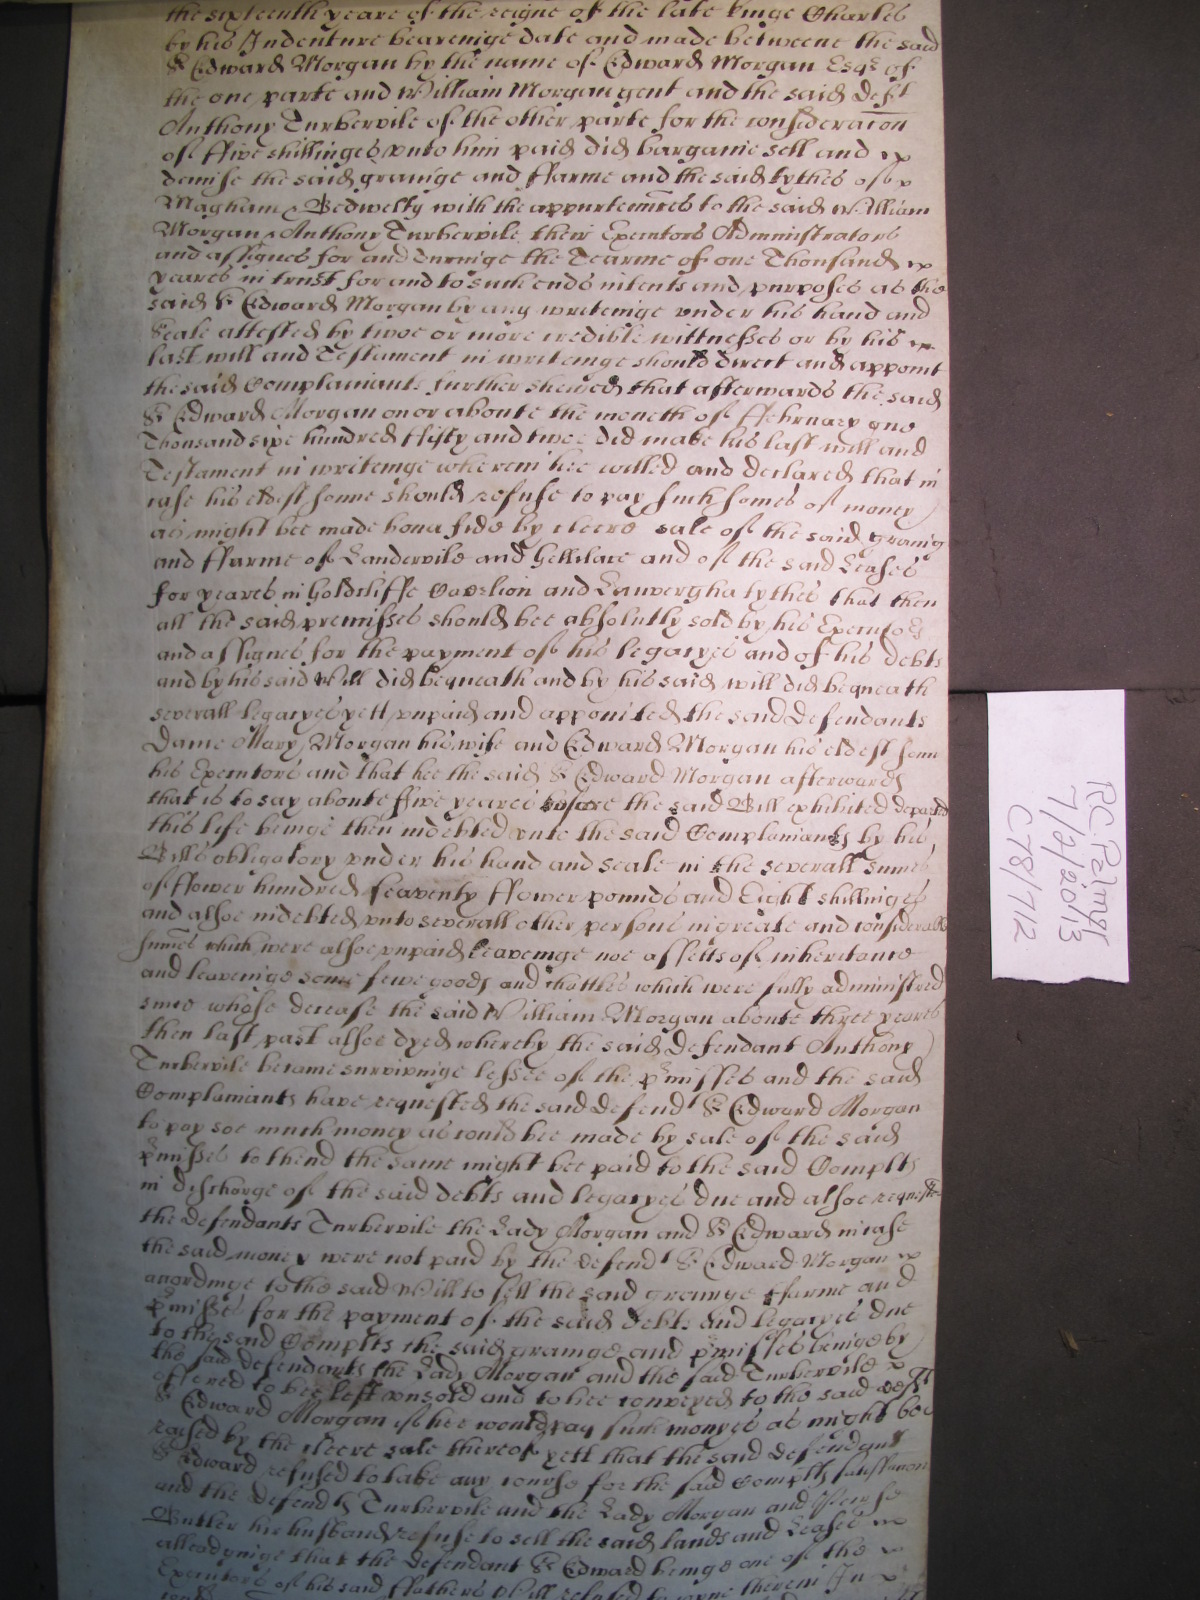 the sixteenth yeare of the reigne of the late Kinge Charles
by his Indenture beareinge date and made betweene the said
Sr Edward Morgan by the name of Edward Morgan Esqr of
the one parte and William Morgan gent and the said Deft
Anthony Turbervile of the other parte for the consideracon
of ffive shillinges unto him paid did bargaine sell and
demise the said grainge and ffarme and the said tythes of
Magham Bedwelty with the appurtennces to the said William
Morgan Anthony Turbervile their Executors Administrators
and assignes for and dureinge the Tearme of one Thousand
yeares in trust for and to such ends intents and purposes as the
said Sr Edward Morgan by any writeinge under his hand and
Seale attested by twoe or more credible wittnesses or by his
last will and Testament in writeinge should direct and appoint
the said Complainants further shewed that afterwards the said
Sr Edward Morgan on or aboute the moneth of ffebruary one
Thousand sixe hundred ffifty and twoe did make his last will and
Testament in writeinge wherein hee willed and declared that in
case his eldest sonne should refuse to pay such somes of money
as might bee made bona fide by cleere sale of the said graing
and ffarme of Landervile and Gellilace and of the said Leases
for yeares in Goldcliffe Carelion and Lanvergha tythes that then
all the said premisses should bee absolutly sold by his Executors
and assignes for the payment of his legacyes and of his debts
and by his said Will did bequeath and by his said will did bequeath
severall legacyes yett unpaid and appointed the said Defendants
Dame Mary Morgan his wife and Edward Morgan his eldest sonn
his Executors and that hee the said Sr Edward Morgan afterwards
that is to say aboute five yeares before the said Bill exhibited departed
this life beinge then indebted unto the said Complainants by his
Bills obligatory under his hand and seale in the severall summes
of ffower hundred seaventy ffower pounds and Eight shillinges
and alsoe indebted unto severall other persons in greate and considerable
summes which were alsoe unpaid leaveinge noe assetts of inheritance
and leaveinge some fewe goods and chattles which were fully administred
since whose decease the said William Morgan aboute three yeares
then last past alsoe dyed whereby the said Defendant Anthony
Turbervile became surviveinge lessee of the pmisses and the said
Complainants have requested the said Defendt Sr Edward Morgan
to pay soe much money as could bee made by sale of the said
pmisses to thend the same might bee paid to the said Complts
in discharge of the said debts and legacyes due and alsoe requested
the defendants Turbervile the Lady Morgan and Sr Edward in case
the said money were not paid by the defendt Sr Edward Morgan
accordinge to the said Will to sell the said grainge ffarme and
pmisses for the payment of the said debts and legacyes due
to the said Complts the said grainge and pmisses beinge by
the said defendants the Lady Morgan and the said Turbervile
offered to bee left unsold and to bee conveyed to the said Deft
Sr Edward Morgan if hee would pay such monyes as might bee
raised by the cleere sale thereof yett that the said defendant
Sr Edward refused to take any course for the said Complts satisfaccon
and the defendts Turbervile and the Lady Morgan and
Butler her husband refuse to sell the said lands and Leases
alleadgeinge that the defendant Sr Edward beinge one of the
Executors of his said ffathers Will refused to joyne therein In
RC Palmer
7/2/2013
C78/712